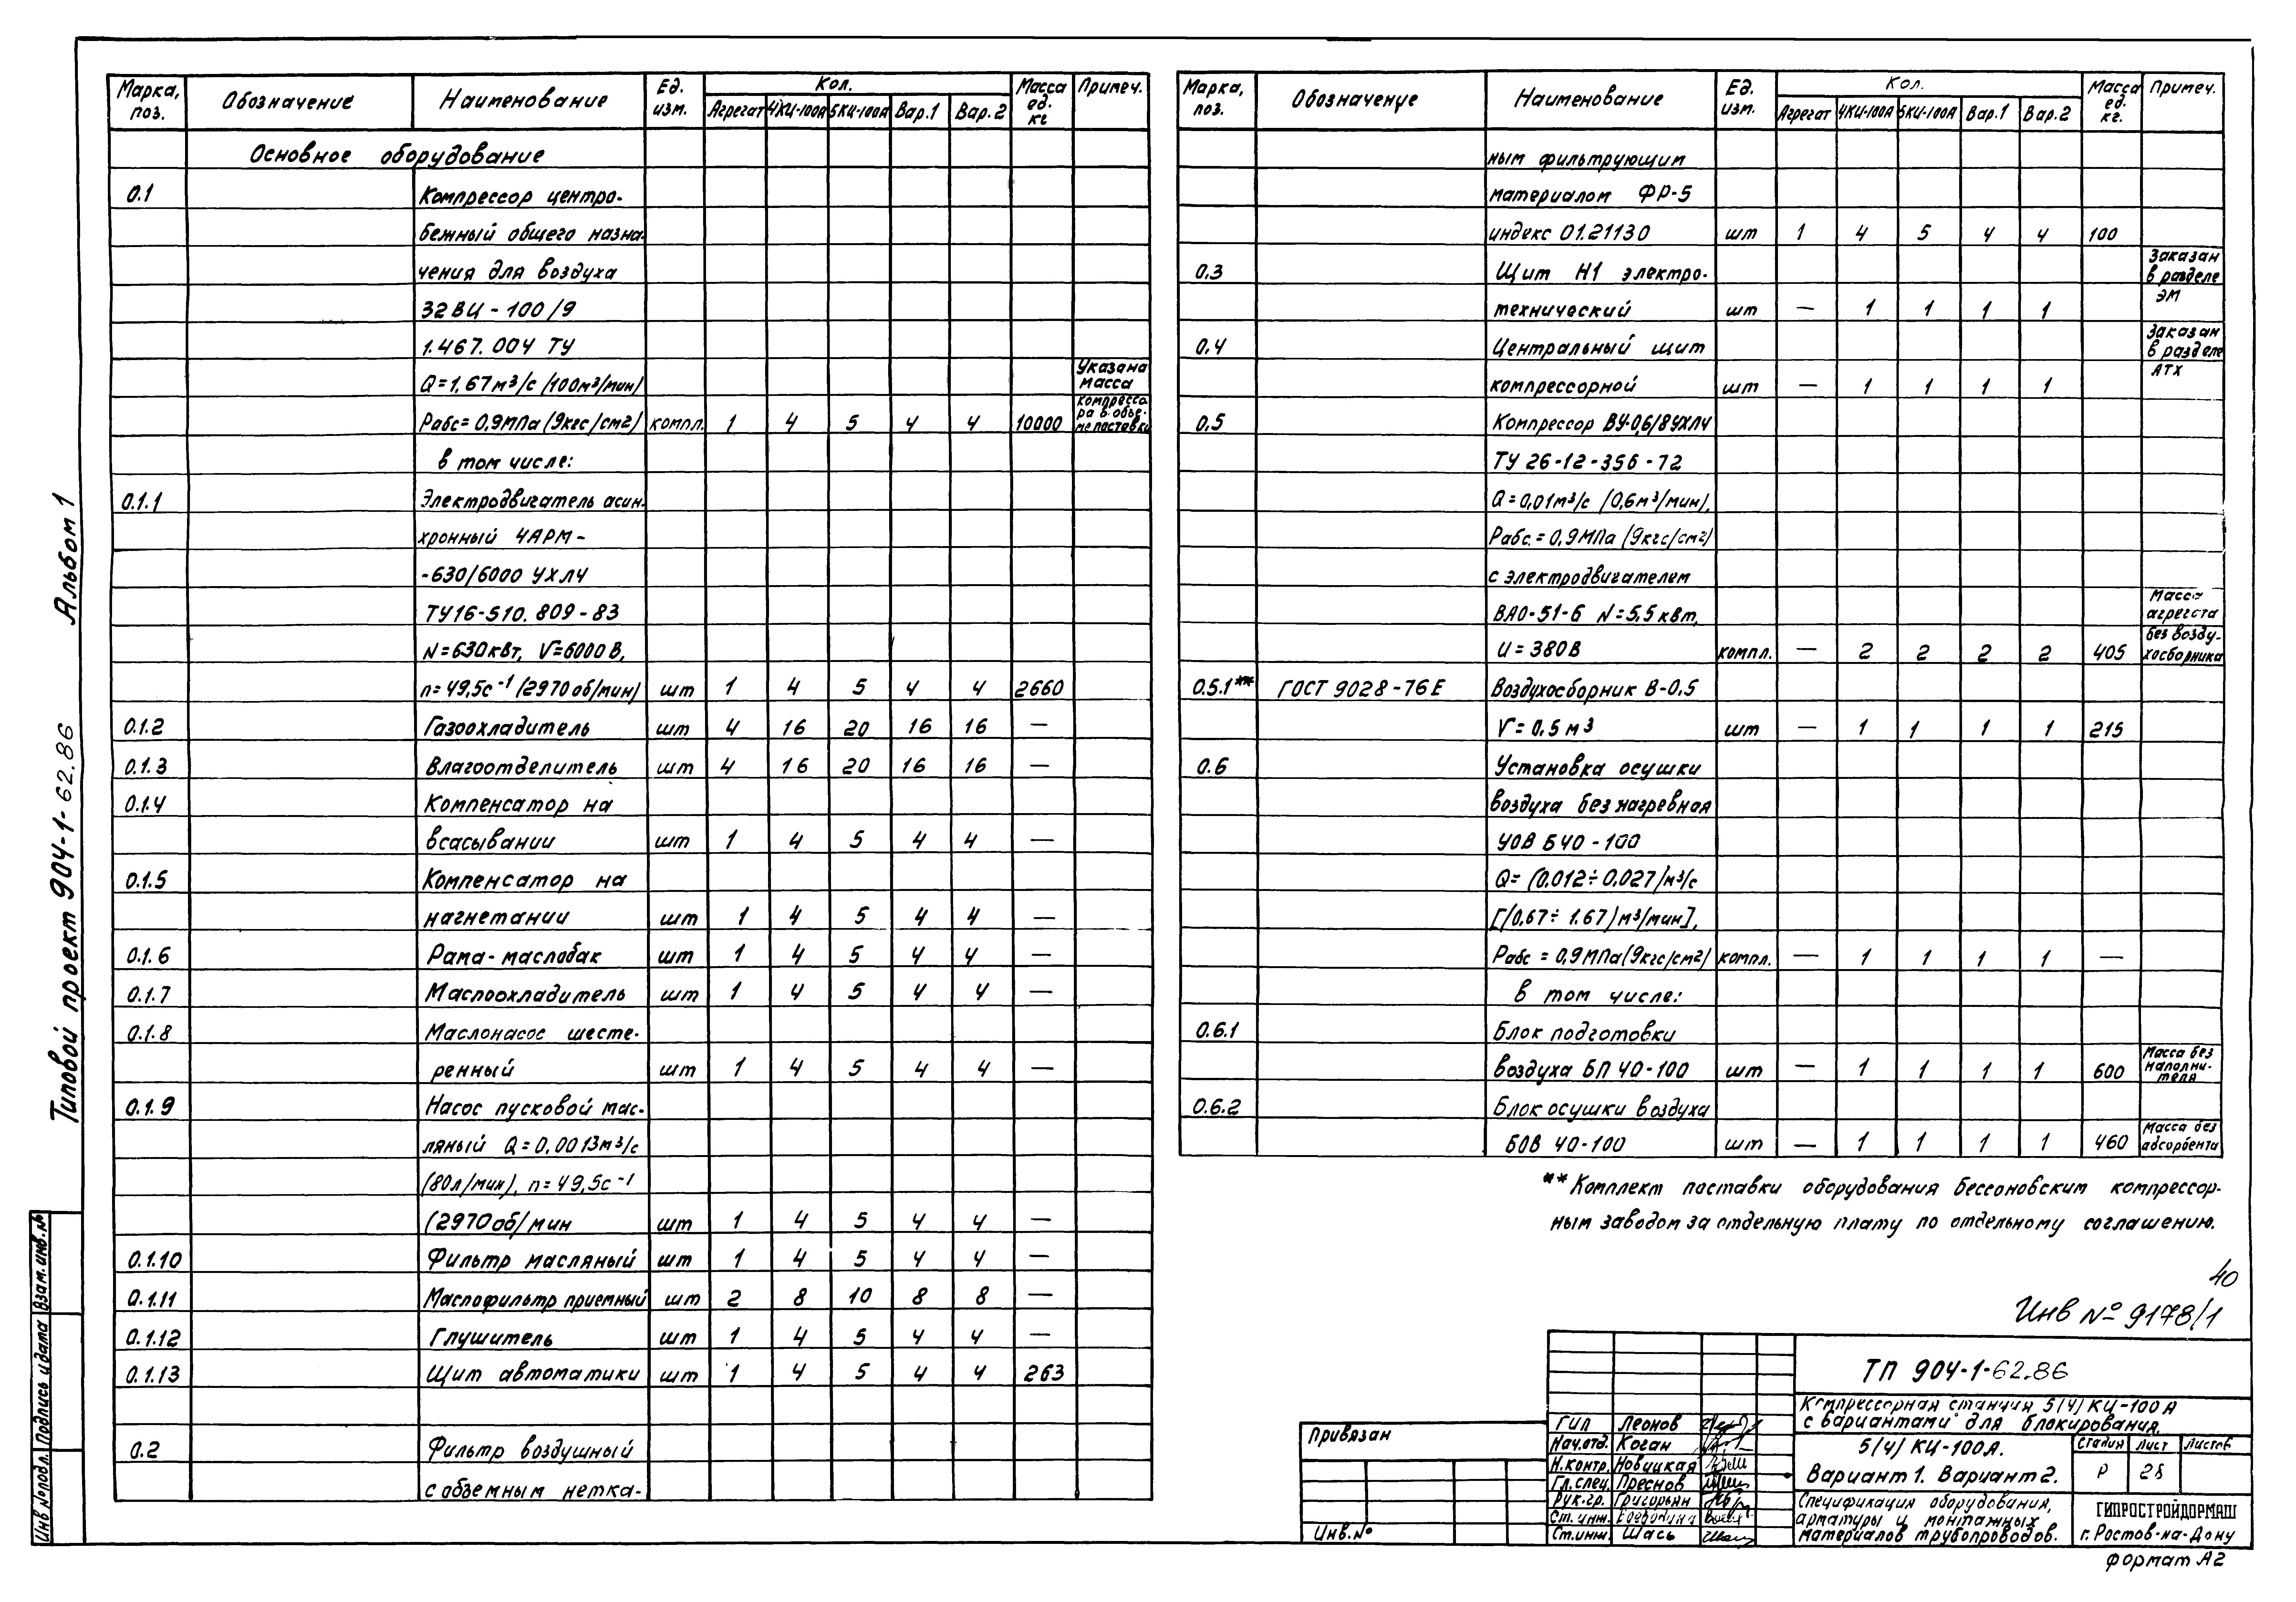 Марка, поз. Обозначение Наименование Ед. изм. Кол. Масса ед. кг Примеч.
Агрегат 4КЦ-100А 5КЦ-100А Вар.1 Вар.2
Основное оборудование
0.1 Компрессор центро-
бежный общего назна-
чения для воздуха
32ВЦ-100/9
1.467.004 ТУ
Q=1,67м³/с (100м³/мин)
Рабс=0,9МПа (9кгс/см2) компл. 1 4 5 4 4 10000 Указана масса компрессора в объеме поставки
в том числе:
0.1.1 Электродвигатель асин-
хронный 4АРМ-
-630/6000 УХЛ4
ТУ16-510.809-83
N=630кВт, V=6000В,
n=49,5с⁻¹ (2970об/мин) шт 1 4 5 4 4 2660
0.1.2 Газоохладитель шт 4 16 20 16 16 —
0.1.3 Влагоотделитель шт 4 16 20 16 16 —
0.1.4 Компенсатор на
всасывании шт 1 4 5 4 4 —
0.1.5 Компенсатор на
нагнетании шт 1 4 5 4 4 —
0.1.6 Рама-маслобак шт 1 4 5 4 4 —
0.1.7 Маслоохладитель шт 1 4 5 4 4 —
0.1.8 Маслонасос шесте-
ренный шт 1 4 5 4 4 —
0.1.9 Насос пусковой мас-
ляный Q=0,0013м³/с
(80л/мин), n=49,5с⁻¹
(2970об/мин шт 1 4 5 4 4 —
0.1.10 Фильтр масляный шт 1 4 5 4 4 —
0.1.11 Маслофильтр приемный шт 2 8 10 8 8 —
0.1.12 Глушитель шт 1 4 5 4 4 —
0.1.13 Щит автоматики шт 1 4 5 4 4 263
0.2 Фильтр воздушный
с объемным нетка-
Марка, поз. Обозначение Наименование Ед. изм. Кол. Масса ед. кг. Примеч.
Агрегат 4КЦ-100А 5КЦ-100А Вар.1 Вар.2
ным фильтрующим
материалом ФР-5
индекс 01.21130 шт 1 4 5 4 4 100
0.3 Щит Н1 электро-
технический шт — 1 1 1 1 Заказан в разделе ЭМ
0.4 Центральный щит
компрессорной шт — 1 1 1 1 Заказан в разделе АТХ
0.5 Компрессор ВУ-0,6/8УХЛ4
ТУ 26-12-356-72
Q=0,01м³/с (0,6м³/мин),
Рабс.=0,9МПа (9кгс/см2)
с электродвигателем
ВАО-51-6 N=5,5квт,
U=380В компл. — 2 2 2 2 405 Масса агрегата без воздухосборника
0.5.1** ГОСТ 9028-76Е Воздухосборник В-0,5
V=0,5м³ шт — 1 1 1 1 215
0.6 Установка осушки
воздуха безнагревная
УОВ Б40-100
Q=(0,012÷0,027)м³/с
[(0,67÷1.67)м³/мин],
Рабс=0,9МПа(9кгс/см2) компл. — 1 1 1 1 —
в том числе:
0.6.1 Блок подготовки
воздуха БП 40-100 шт — 1 1 1 1 600 Масса без наполнителя
0.6.2 Блок осушки воздуха
БОВ 40-100 шт — 1 1 1 1 460 Масса без адсорбента
** Комплект поставки оборудования бессоновским компрессор-
ным заводом за отдельную плату по отдельному соглашению.
40
Инв № 9178/1
ТП 904-1-62.86
Компрессорная станция 5(4)КЦ-100А
с вариантами для блокирования.
5(4)КЦ-100А.
Вариант 1. Вариант 2.
Стадия Лист Листов
Р 28
Спецификация оборудования,
арматуры и монтажных
материалов трубопроводов.
ГИПРОСТРОЙДОРМАШ
г. Ростов-на-Дону
Формат А2
Гип Леонов
Нач.отд. Коган
Н.контр. Новицкая
Гл.спец. Преснов
Рук.гр. Григорьян
Ст.инж.
Ст.инж. Шась
Привязан
Инв.№
Типовой проект 904-1-62.86 Альбом 1
Инв № подл. Подпись и дата Взам.инв.№